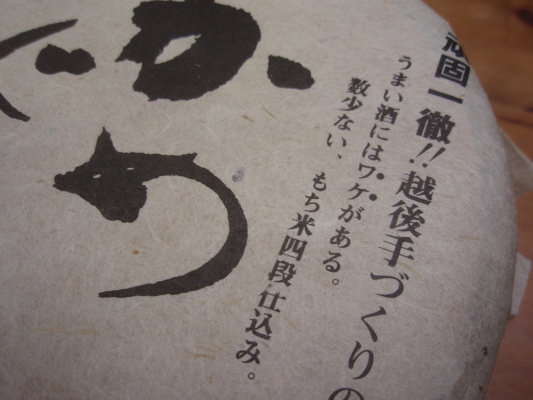 頑固一徹!!越後手づくりの
うまい酒にはワケがある。
数少ない、もち米四段仕込み。